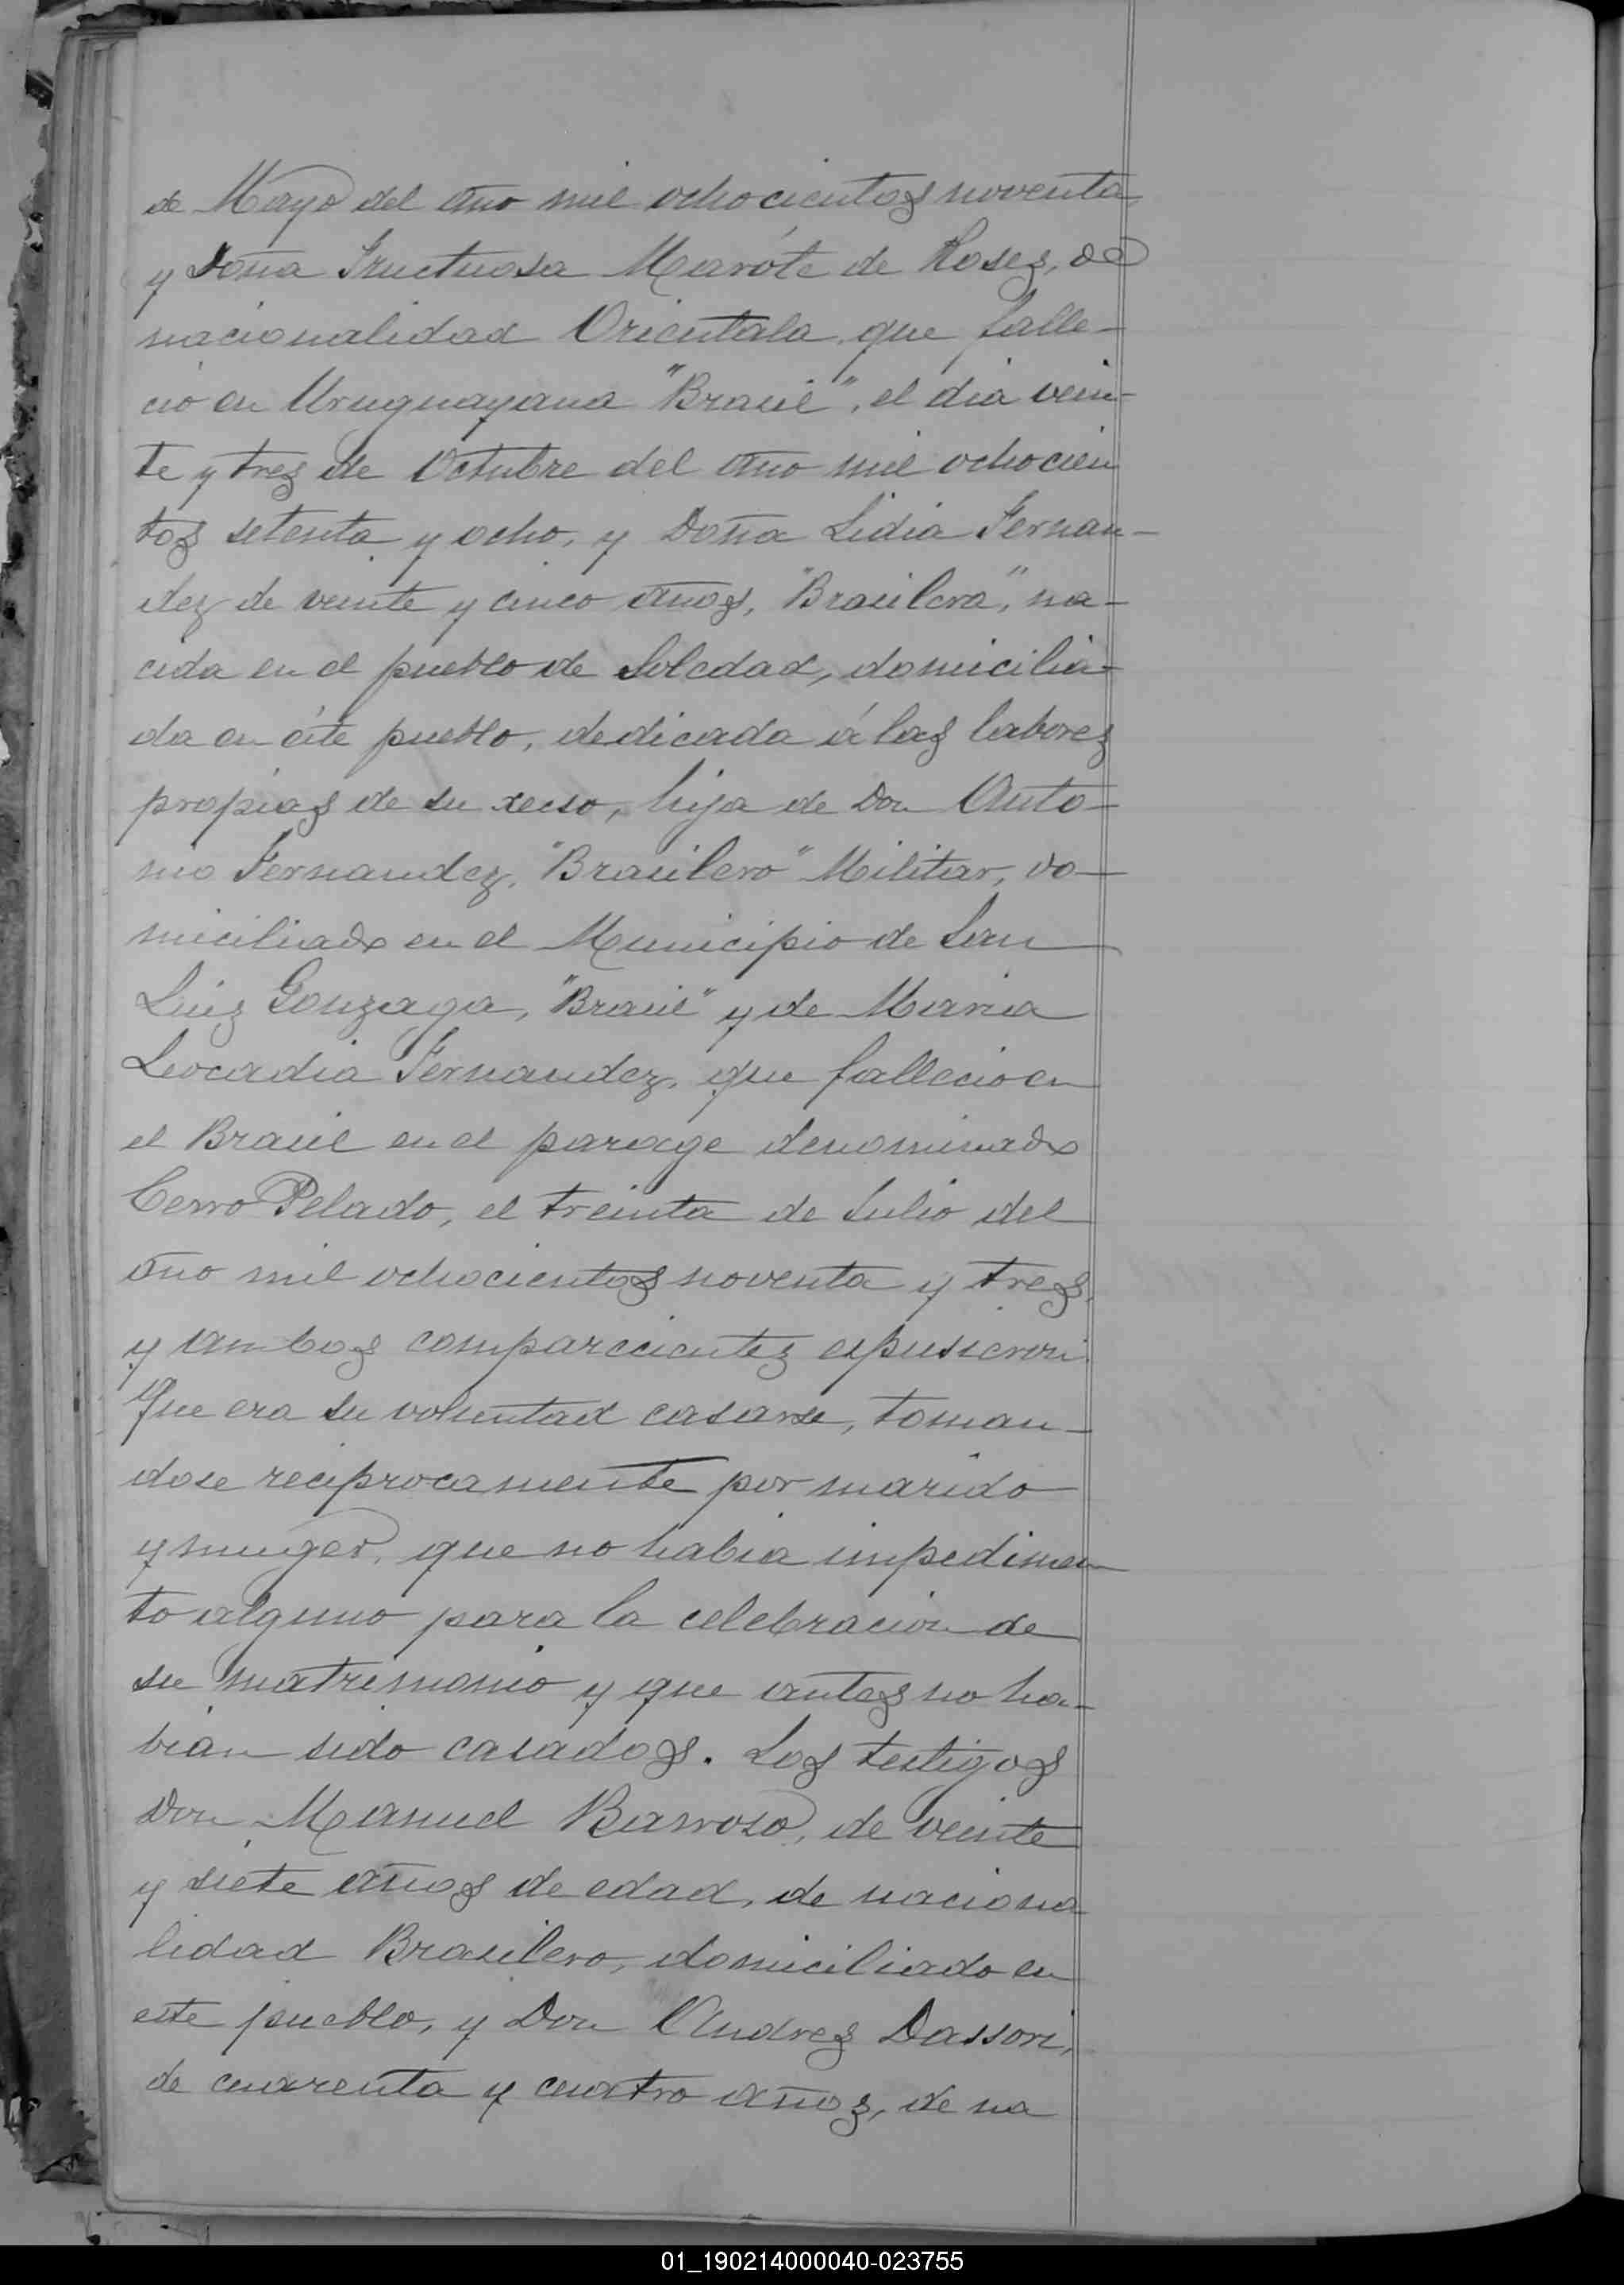 de Mayo del año mil ochocientos noventa
y Doña Fructuosa Maróte de Roses, de
nacionalidad Orientala que falle-
ció en Uruguayana "Brasil", el dia vein-
te y tres de Octubre del año mil ochocien
tos setenta y ocho, y Doña Lidia Fernan-
dez de veinte y cinco años, "Brasilera", na-
cida en el pueblo de Soledad, domicilia-
da en éste pueblo, dedicada á las labores
propias de su secso, hija de Don Anto-
nio Fernandez, "Brasilero" Militar, do-
miciliado en el Municipio de San
Luis Gonzaga, "Brasil" y de Maria
Leocadia Fernandez, que fallecio en
el Brasil en el parage denominado
Cerro Pelado, el treinta de Julio del
año mil ochocientos noventa y tres,
y ambos comparecientes espusieron:
Que era su voluntad casarse, toman-
dose reciprocamente por marido
y muger, que no habia impedimen
to alguno para la celebracion de
su matrimonio y que antes no ha-
bian sido casados. Los testigos
Don Manuel Barroso, de veinte
y siete años de edad, de naciona
lidad Brasilero, domiciliado en
este pueblo, y Don Andres Dassori,
de cuarenta y cuatro años, de na
01_190214000040-023755